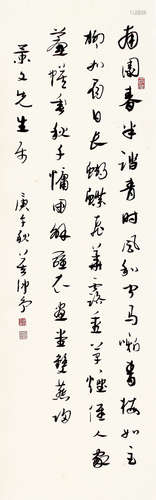 南園春半踏青時風和聞馬嘶青梅如豆
柳如眉日長蝴蝶飛華露重草煙低人家
簾幕垂秋千慵困解羅衣畫堂雙燕歸
文先生屬 庚午秋